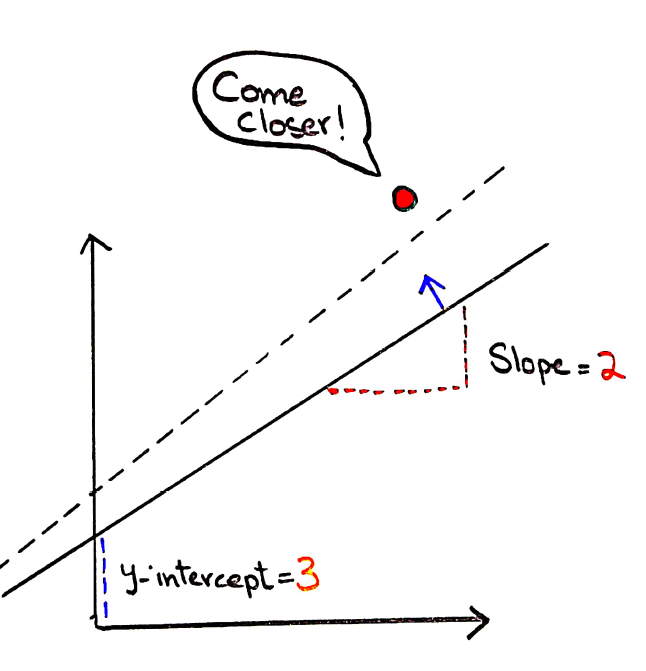 Come
closer!
Slope = 2
y-intercept = 3